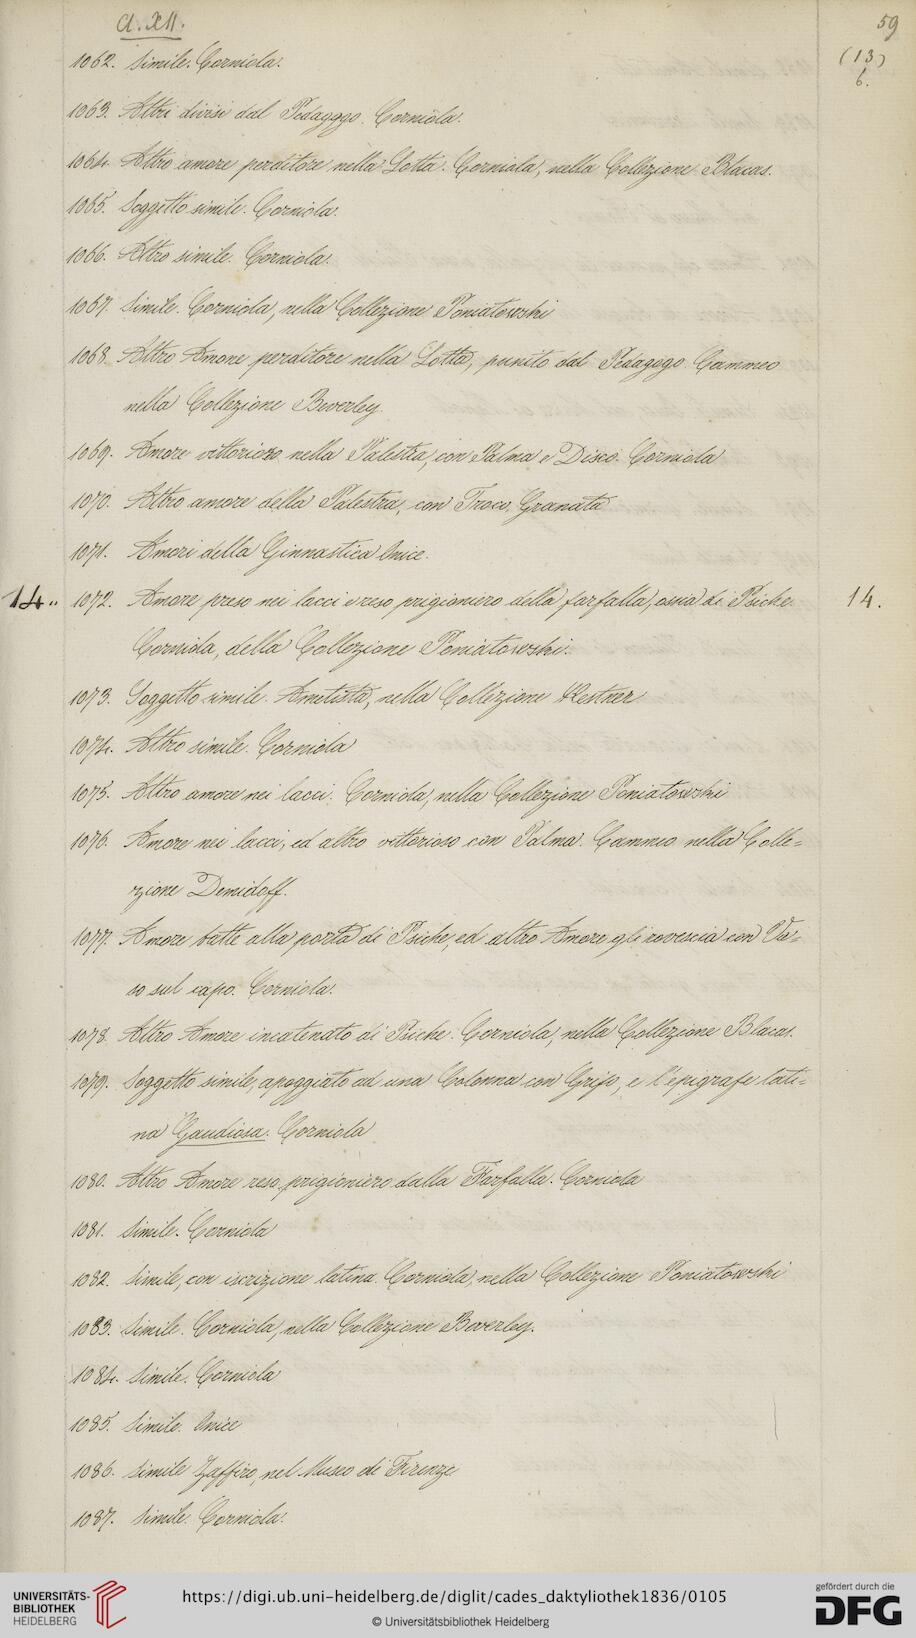 Cl. XII.
59
(13)
6.
1062. Simile. Corniola.
1063. Altri divisi dal Pedagogo. Corniola.
1064. Altro amore perditore nella Lotta. Corniola, nella Collezione Blacas.
1065. Soggetto simile. Corniola.
1066. Altro simile. Corniola.
1067. Simile. Corniola, nella Collezione Poniatowski
1068. Altro Amore perditore nella Lotta, punito dal Pedagogo. Cammeo
nella Collezione Beverley.
1069. Amore vittorioso nella Palestra, con Palma e Disco. Corniola
1070. Altro amore della Palestra, con Troco. Granata
1071. Amori della Ginnastica Onice.
14.. 1072. Amore preso nei lacci e reso prigioniero della farfalla, ossia di Psiche. 14.
Corniola, della Collezione Poniatowski.
1073. Soggetto simile. Ametista, nella Collezione Kestner
1074. Altro simile. Corniola
1075. Altro amore nei lacci. Corniola, nella Collezione Poniatowski
1076. Amore nei lacci, ed altro vittorioso con Palma. Cammeo nella Colle=
zione Demidoff.
1077. Amore batte alla porta di Psiche, ed altro Amore gli rovescia con Va=
so sul capo. Corniola.
1078. Altro Amore incatenato di Psiche. Corniola, nella Collezione Blacas.
1079. Soggetto simile, apoggiato ad una Colonna con Grifo, e l'epigrafe lati=
na Gaudiosa. Corniola
1080. Altro Amore reso prigioniero dalla Farfalla. Corniola
1081. Simile. Corniola
1082. Simile, con iscrizione latina. Corniola, nella Collezione Poniatowski
1083. Simile. Corniola, nella Collezione Beverley.
1084. Simile. Corniola
1085. Simile. Onice
1086. Simile Zaffiro, nel Museo di Firenze
1087. Simile. Corniola.
UNIVERSITÄTS-
BIBLIOTHEK
HEIDELBERG
https://digi.ub.uni-heidelberg.de/diglit/cades_daktyliothek1836/0105
© Universitätsbibliothek Heidelberg
gefördert durch die
DFG